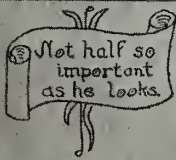 Not half so
important
as he looks.